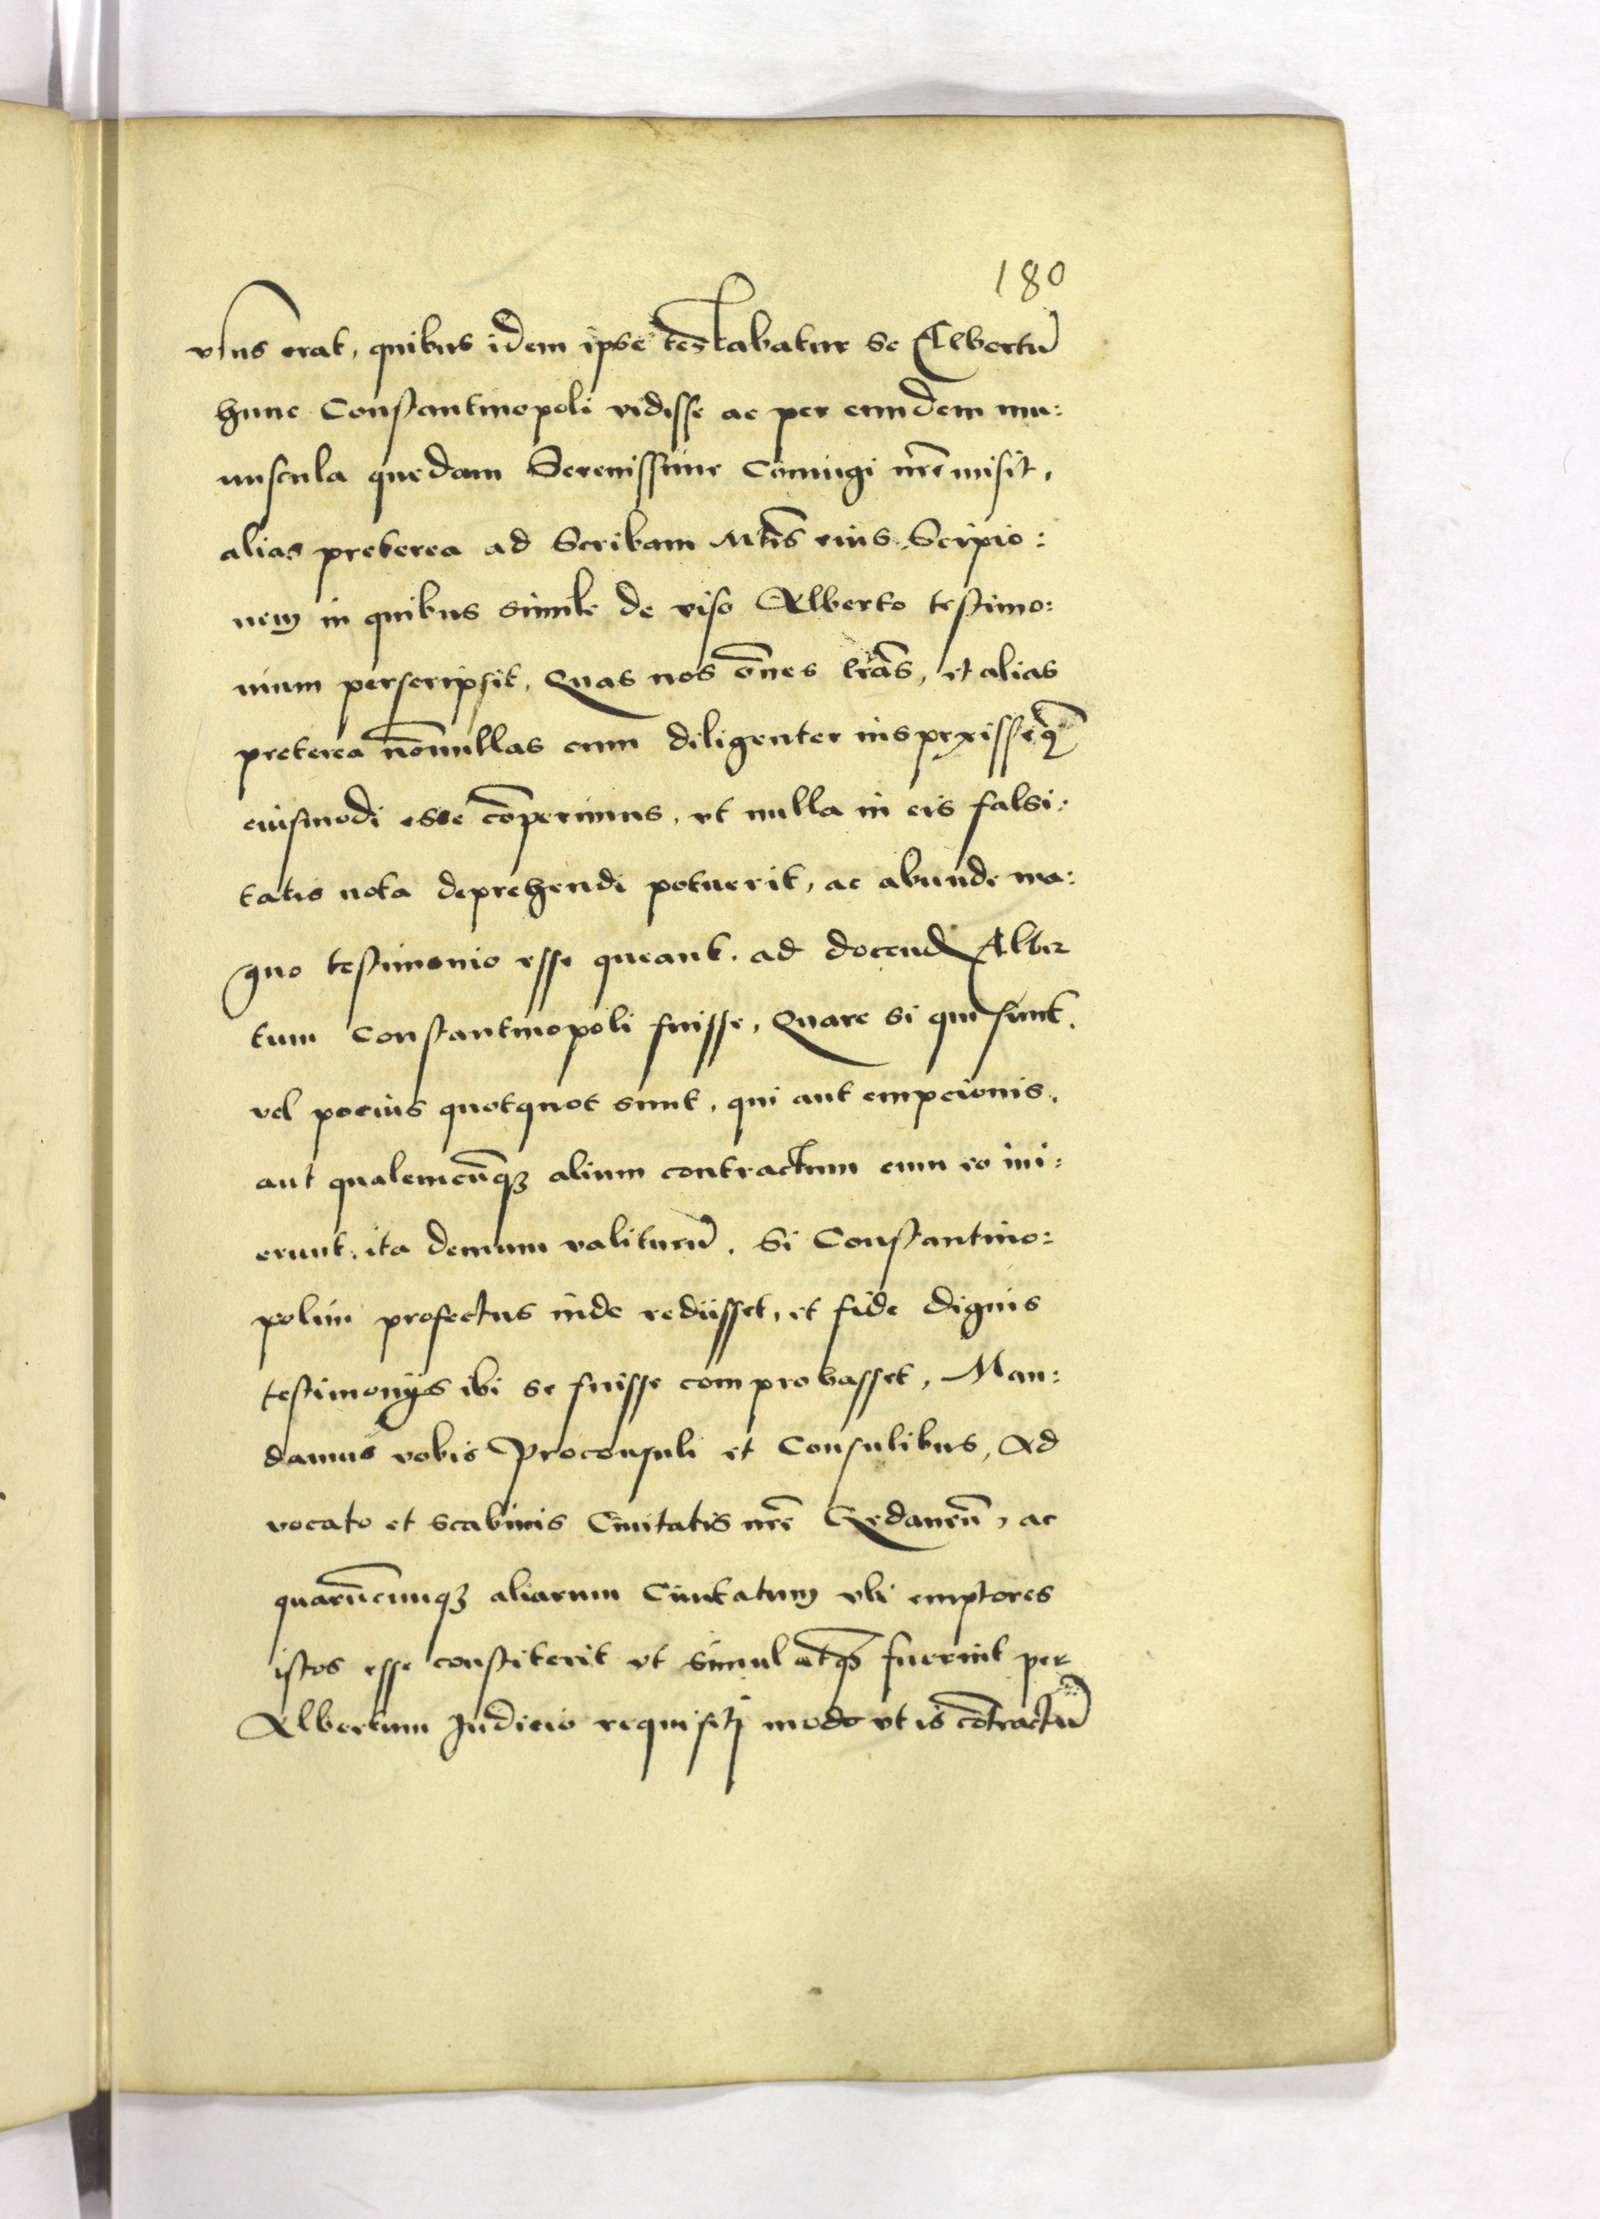 180
vnus erat, quibus idem ipse testabatur se Albertū
hunc Constantinopoli vidisse ac per eundem mu:
nuscula quedam Serenissime Coniugi nr̄e misit,
alias preterea ad Scribam Mtis̄ eius Scipio:
nem in quibus simile de viso Alberto testimo:
nium perscripsit, Quas nos om̄es lr̄as, et alias
preterea nōnullas cum diligenter inspexissemꝰ
eiusmodi esse cōperimus, vt nulla in eis falsi:
tatis nota deprehendi potuerit, ac abunde ma:
gno testimonio esse queant. ad docend Alber
tum Constantinopoli fuisse, Quare si qui sunt,
vel pocius quotquot sunt, qui aut empcionis,
aut qualemcūqꝫ alium contractum cum eo ini:
erunt, ita demum valiturū, si Constantino:
polim profectus inde rediisset, et fide dignis
testimonijs ibi se fuisse comprobasset, Man:
damus vobis Proconsuli et Consulibus, Ad
vocato et scabinis Ciuitatis nr̄e Gedaneñ, ac
quarūcunqꝫ aliarum Ciuitatum vbi emptores
istos esse constiterit vt simul atqꝫ fuerint per
Albertum Iudicio requisiti modo vt is cōtractū